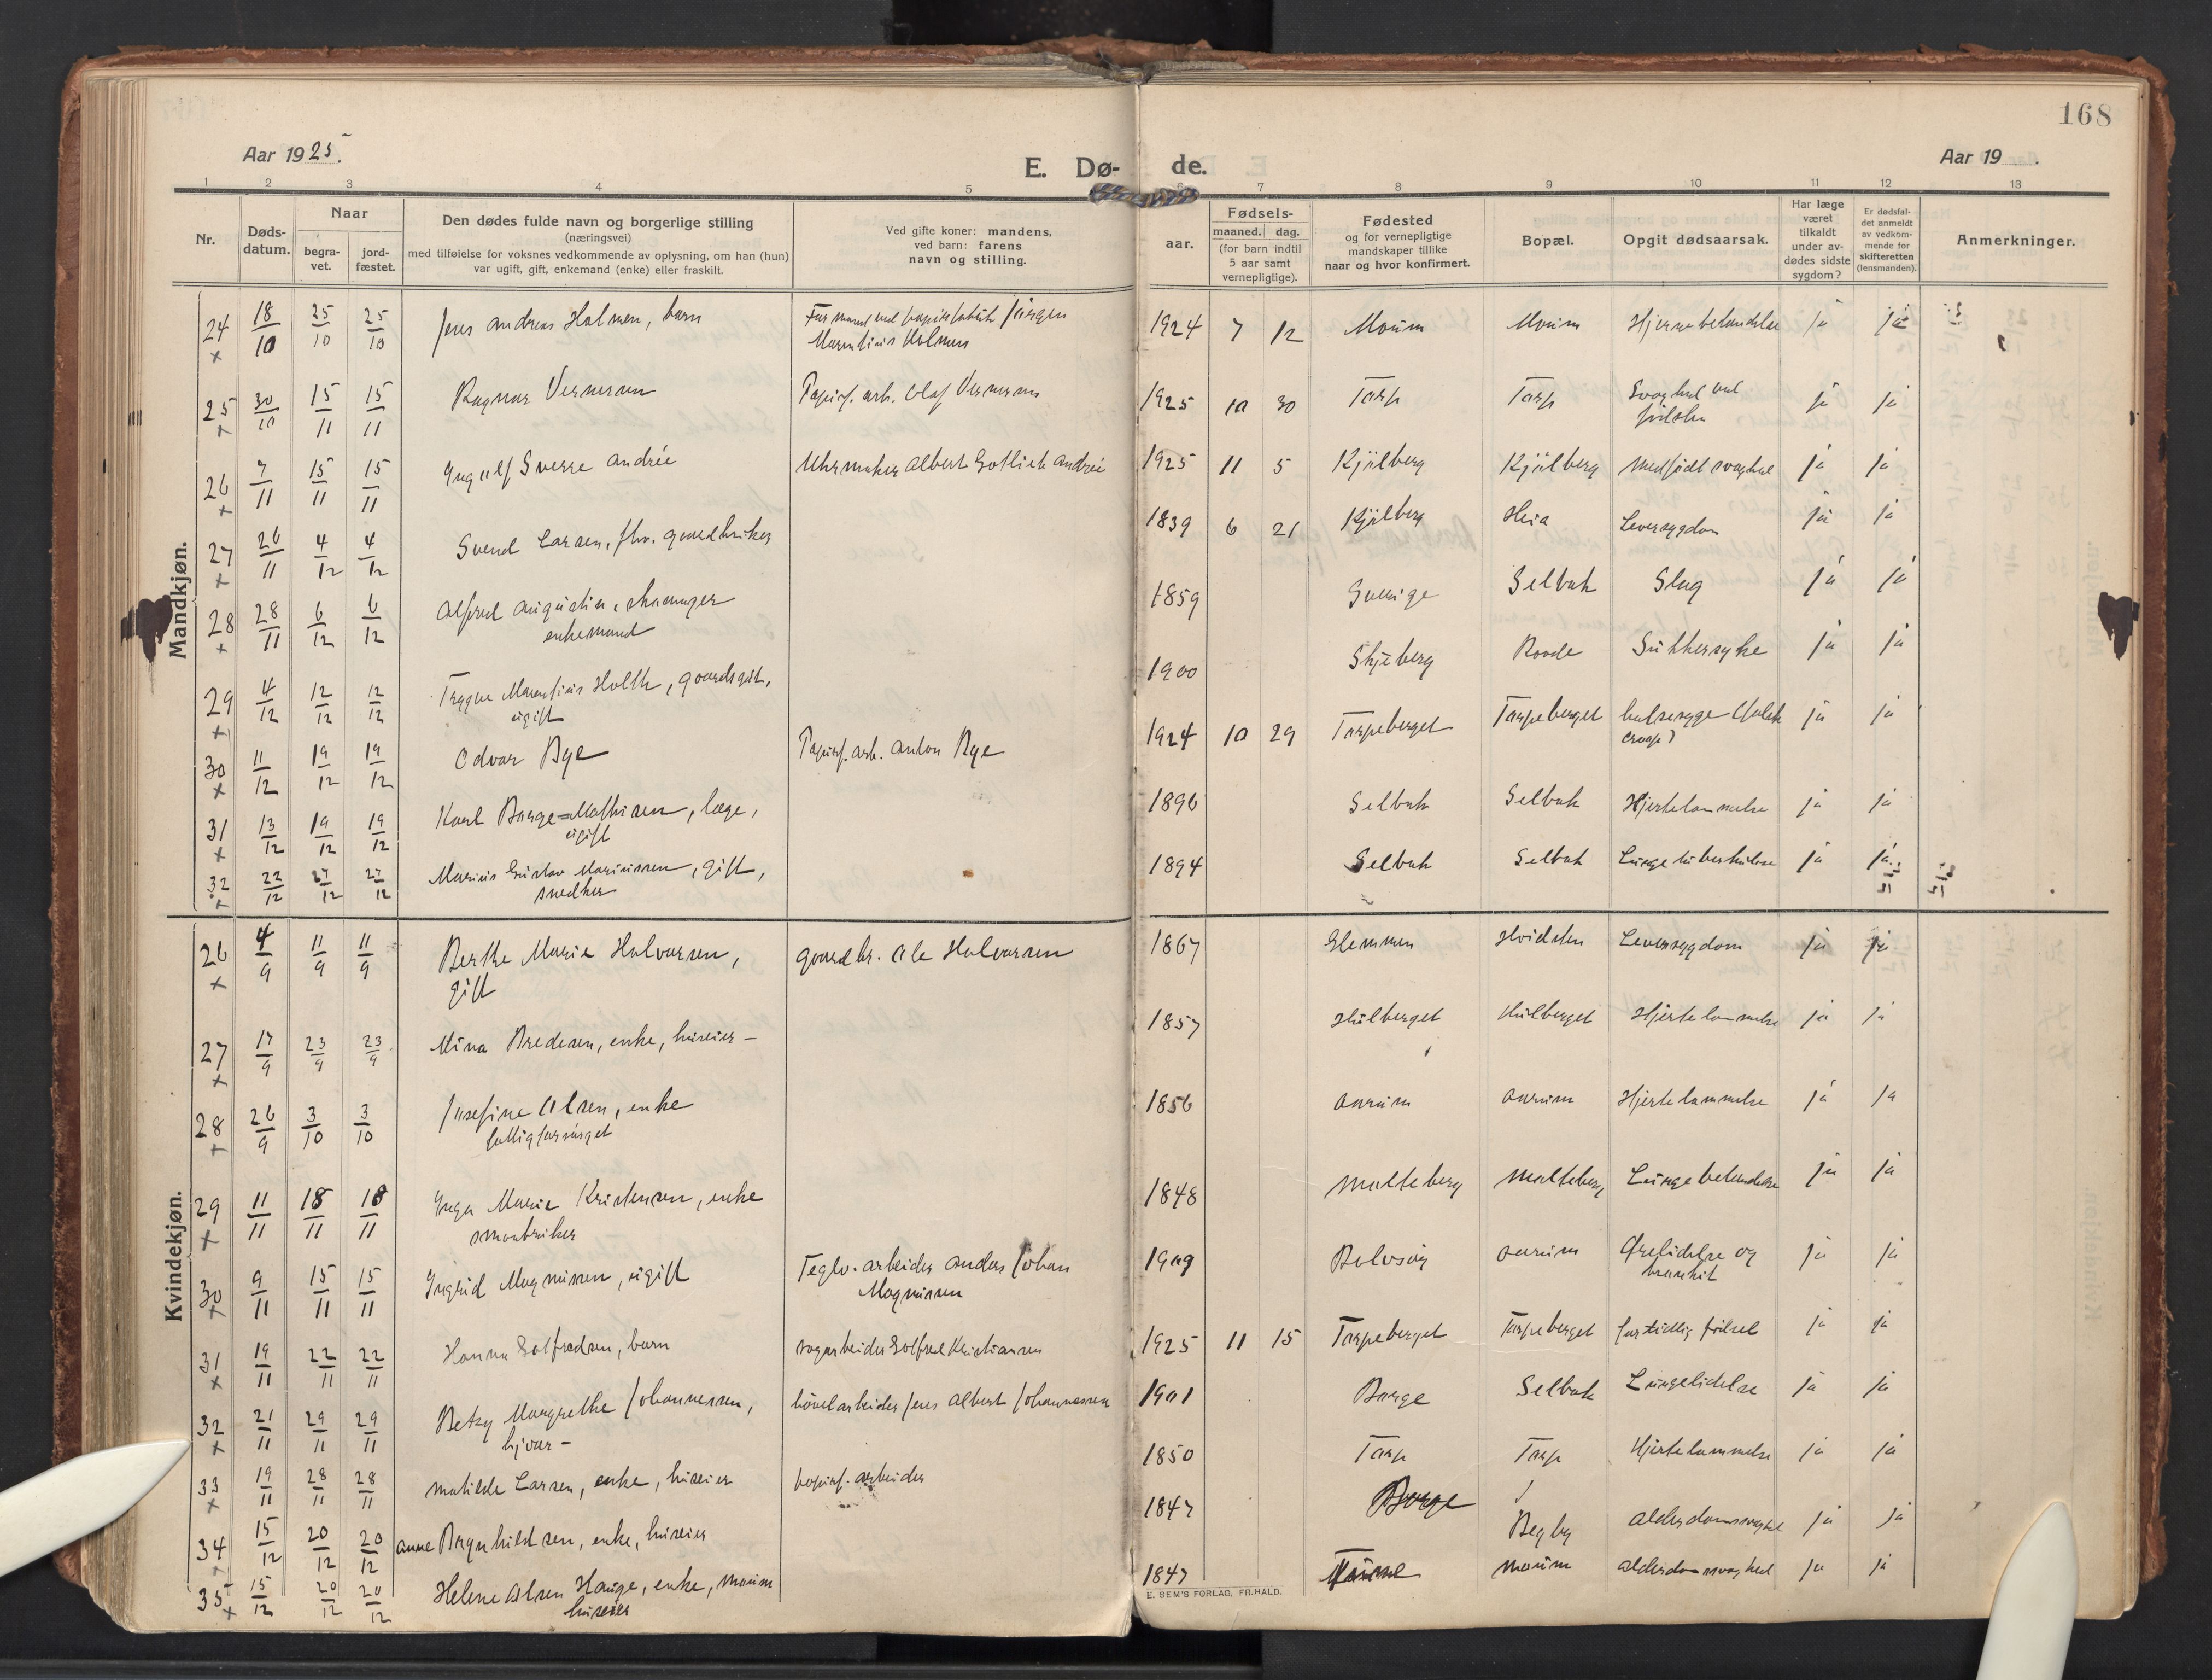 168
Aar 1925.
E. Dø- de.
Aar 19 .
1 2 3 4 5 6 7 8 9 10 11 12 13
Nr.
Døds-
datum.
Naar
begra-
vet.
jord-
fæstet.
Den dødes fulde navn og borgerlige stilling
(næringsvei)
med tilføielse for voksnes vedkommende av oplysning, om han (hun)
var ugift, gift, enkemand (enke) eller fraskilt.
Ved gifte koner: mandens,
ved barn: farens
navn og stilling.
Fødsels-
aar.
maaned. dag.
(for barn indtil
5 aar samt
vernepligtige).
Fødested
og for vernepligtige
mandskaper tillike
naar og hvor konfirmert.
Bopæl.
Opgit dødsaarsak.
Har læge
været
tilkaldt
under av-
dødes sidste
sygdom?
Er dødsfal-
det anmeldt
av vedkom-
mende for
skifteretten
(lensmanden).
Anmerkninger.
Mandkjøn.
24 18/10 25/10 25/10 Jens Andreas Holmen, barn Formand ved papirfabrik Jørgen 1924 7 12 Moum Moum Hjernebetændelse ja ja
x Marentius Holmen
25 30/10 15/11 15/11 Ragnar Vernersen Papirf. arb. Olaf Vernersen 1925 10 30 Torp Torp Svaghed ved ja ja
x fødselen
26 7/11 15/11 15/11 Ingulf Sverre Andrée Uhrmaker Albert Gotlieb Andrée 1925 11 5 Kjølberg Kjølberg Medfødt svaghed ja ja
x
27 26/11 4/12 4/12 Svend Larsen, fhv. gaardbruker 1839 6 21 Kjølberg Heia Leversygdom ja ja
x
28 28/11 6/12 6/12 Alfred Augustin, skomager 1859 Sverige Selbak Slag ja ja
x enkemand
29 4/12 12/12 12/12 Trygve Marentius Holth, gaardsgut, 1900 Skjeberg Roode Sukkersyke ja ja
x ugift
30 11/12 19/12 19/12 Odvar Bye Papirf. arb. Anton Bye 1924 10 29 Torpeberget Torpeberget halsesyge (falsk ja ja
x croup)
31 13/12 19/12 19/12 Karl Borge=Mathisen, læge, 1896 Selbak Selbak Hjertelammelse ja ja
x ugift
32 22/12 27/12 27/12 Marius Gustav Mariussen, gift, 1894 Selbak Selbak Lungetuberkulose ja ja
x snedker
Kvindekjøn.
26 4/9 11/9 11/9 Berthe Marie Halvorsen, gaardbr. Ole Halvorsen 1867 Glemmen Hvidsten Leversygdom ja ja
x gift
27 17/9 23/9 23/9 Mina Bredesen, enke, huseier - 1857 Hulberget Hulberget Hjertelammelse ja ja
x
28 26/9 3/10 3/10 Josefine Olsen, enke 1856 Aarum Aarum Hjertelammelse ja ja
x fattigforsørget
29 11/11 18/11 18/11 Inga Marie Kristensen, enke 1848 Molteberg Molteberg Lungebetændelse ja ja
x smaabruker
30 9/11 15/11 15/11 Ingrid Magnussen, ugift Teglv. arbeider Anders Johan 1909 Aarum Ørelidelse og ja ja
x Magnussen bronkit
31 19/11 22/11 22/11 Hanna Gotfredsen, barn sagarbeider Gotfred Kristiansen 1925 11 15 Torpeberget Torpeberget for tidlig fødsel ja ja
x
32 21/11 29/11 29/11 Betzy Margrethe Johannessen, høvelarbeider Jens Albert Johannessen 1901 Borge Selbak Lungelidelse ja ja
x
33 19/11 28/11 28/11 Matilde Larsen, enke, huseier papirf. arbeider 1850 Torp Torp Hjertelammelse ja ja
x
34 15/12 20/12 20/12 Anne Brynhildsen, enke, huseier 1847 Borge Begby Alderdomssvaghed ja ja
35 15/12 20/12 20/12 Helene Olsen Hauge, enke, Moum 1847 Moum Alderdomssvaghed ja ja
x huseier
E. SEM'S FORLAG, FR.HALD.